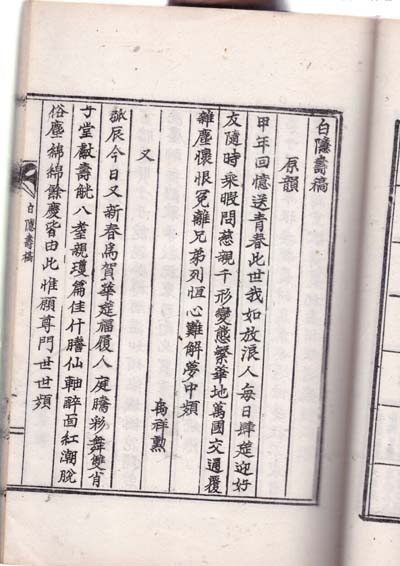 白隱壽稿
原韻
甲年回憶送青春此世我如放浪人每日肆筵迎好
友隨時乘暇問慈親千形變態繁華地萬國交通覆
雜塵懷恨冤離兄弟列恒心難解夢中頻
又
禹祥勲
弧辰今日又新春爲賀華筵福履人庭騰彩舞雙肖
子堂獻壽觥八耋親瓊篇佳什謄仙軸醉面紅潮脫
俗塵綿綿餘慶皆由此惟願尊門世世頻
白隱壽稿